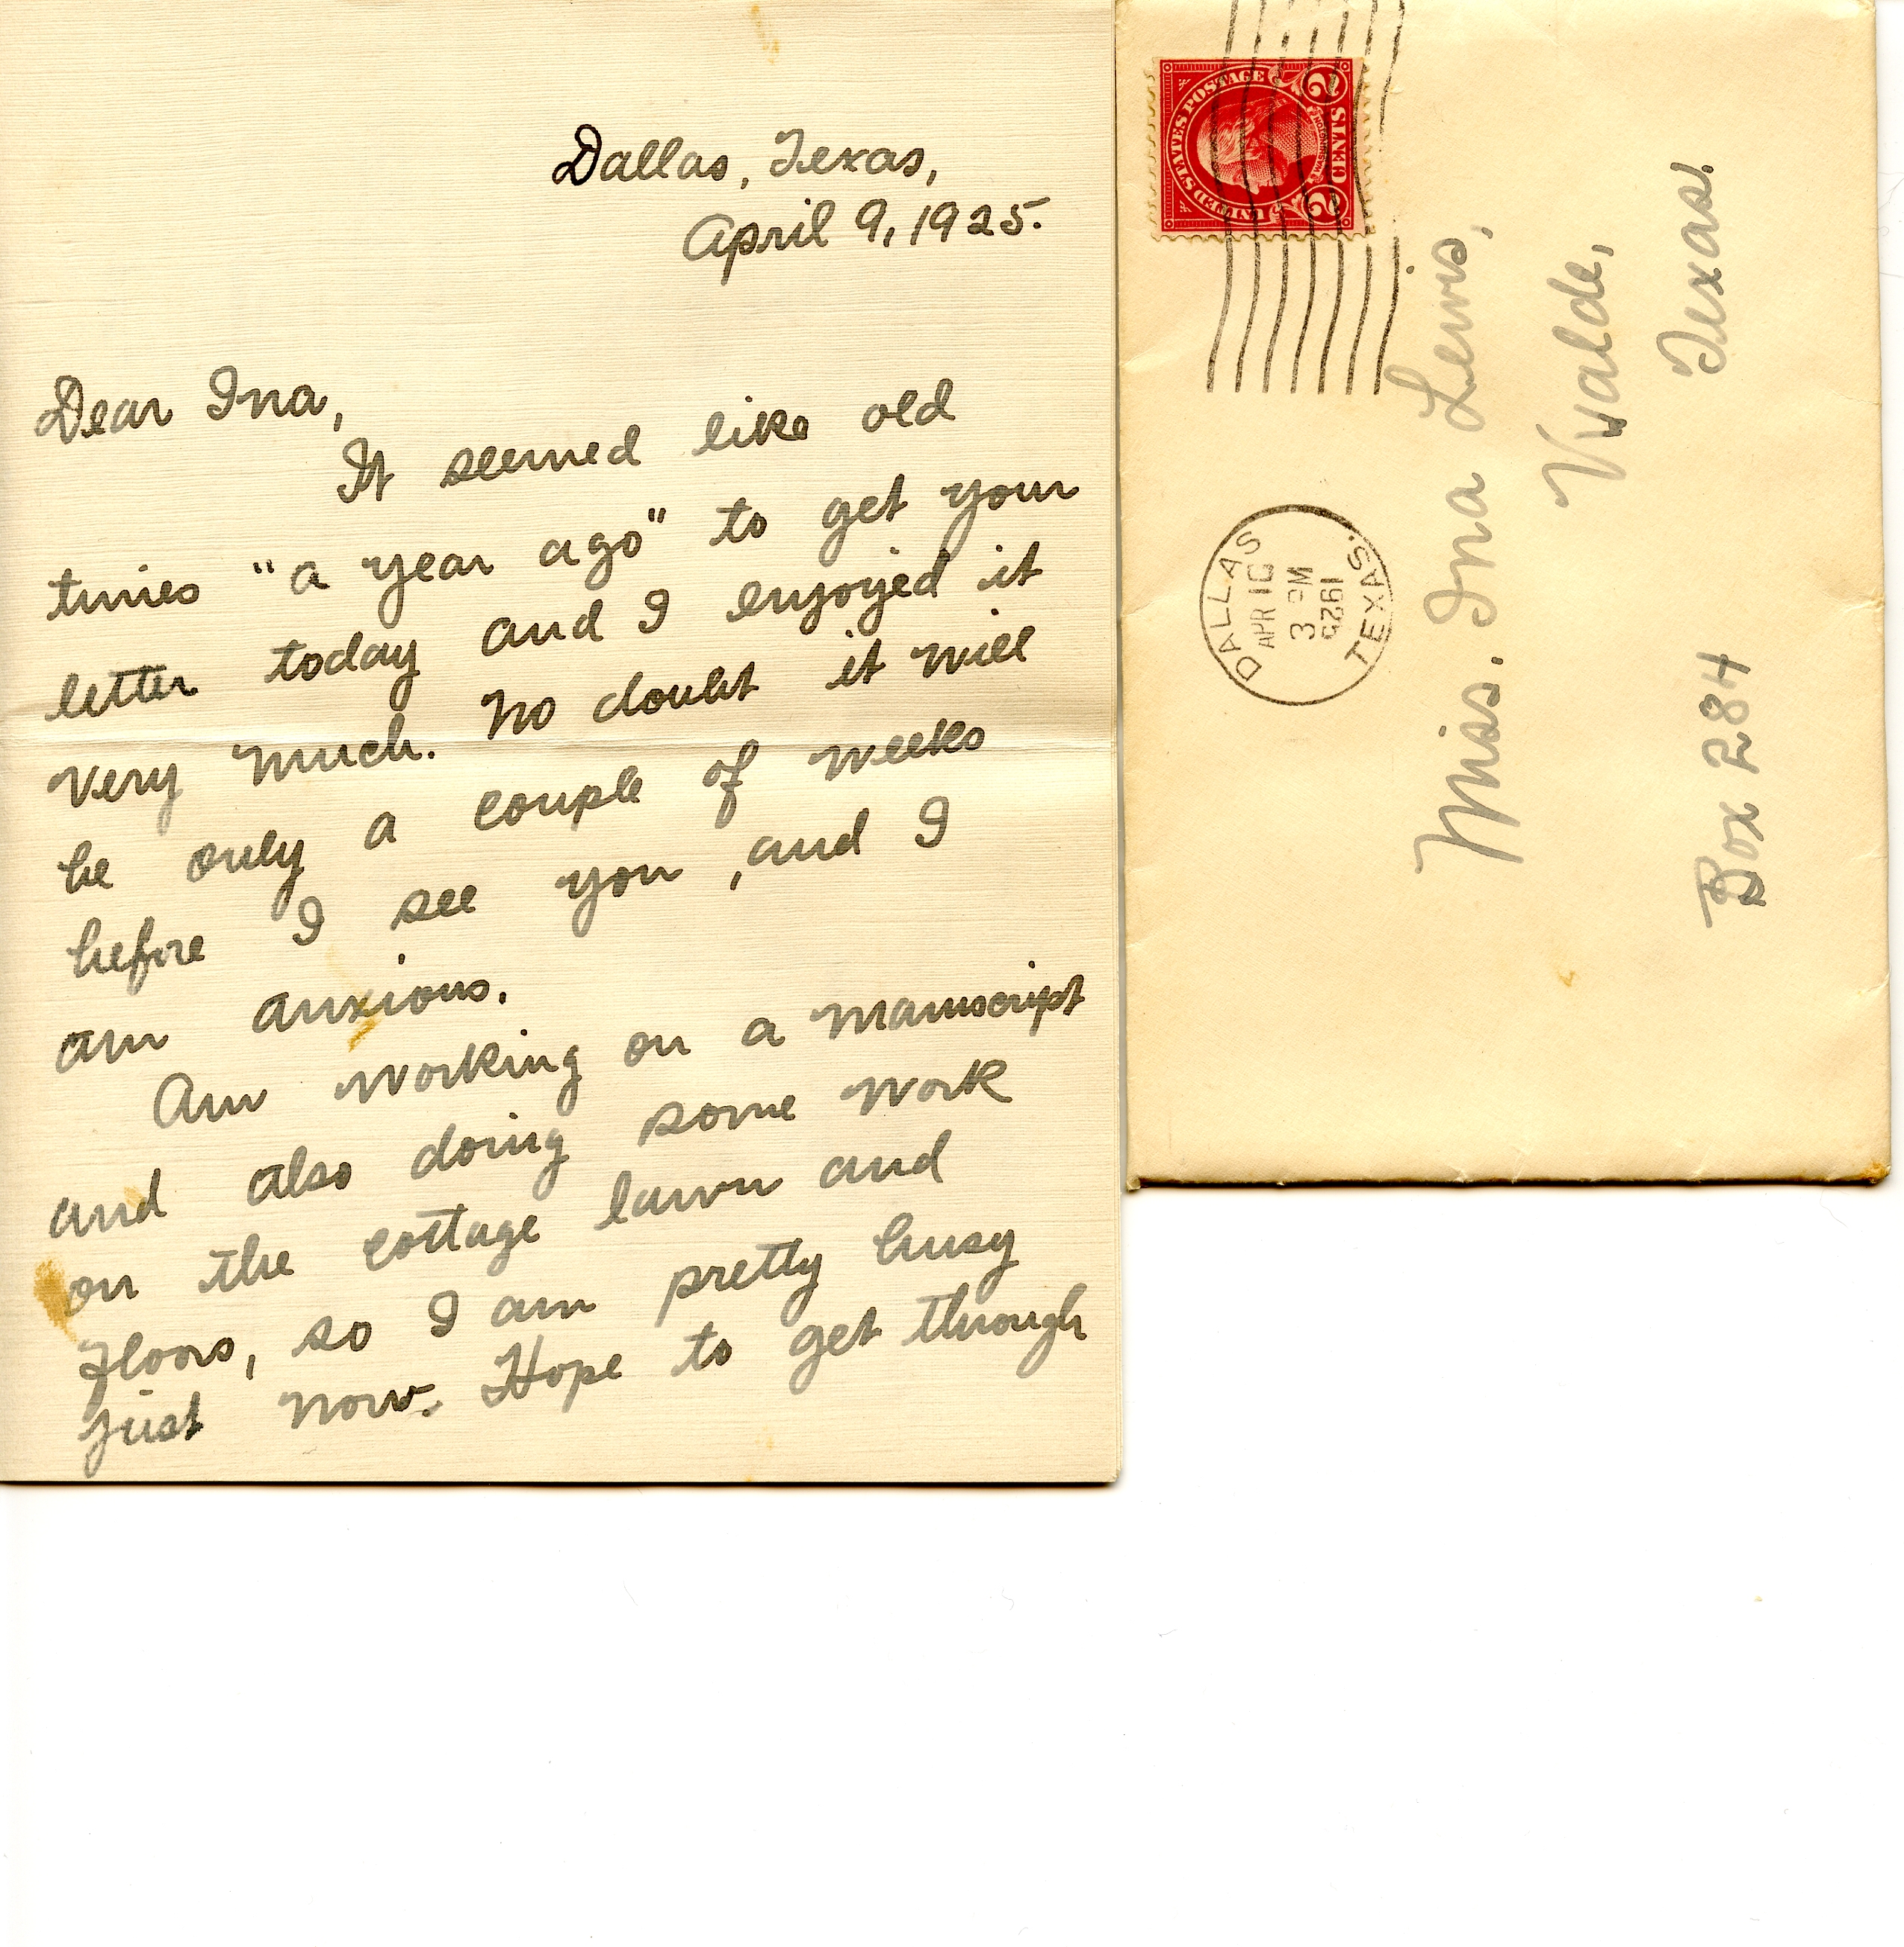 Dallas, Texas,
April 9, 1925.
Dear Ina,
It seemed like old
times "a year ago" to get your
letter today and I enjoyed it
very much. No doubt it will
be only a couple of weeks
before I see you, and I
am anxious.
Am working on a manuscript
and also doing some work
on the cottage lawn and
floors, so I am pretty busy
just now. Hope to get through
UNITED STATES POSTAGE
2 CENTS 2
DALLAS
APR 10
3 PM
1925
TEXAS.
Miss. Ina Lewis,
Uvalde,
Texas.
Box 284